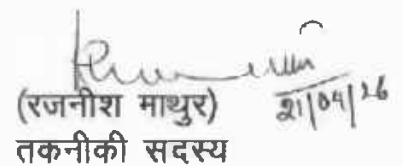 (रजनीश माथुर) 21/04/26
तकनीकी सदस्य